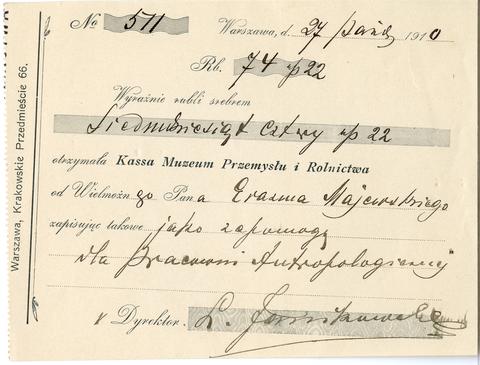 No 511 Warszawa, d. 27 paźdz 1910
Rb. 74 kp 22
Wyraźnie rubli srebrem
Siedmdziesiąt cztery kp 22
otrzymała Kassa Muzeum Przemysłu i Rolnictwa
od Wielmożnego Pana Erazma Majewskiego
zapisując takowe jako zapomogę
dla Pracowni Antropologicznej
Dyrektor. L.
Warszawa, Krakowskie Przedmieście 66.